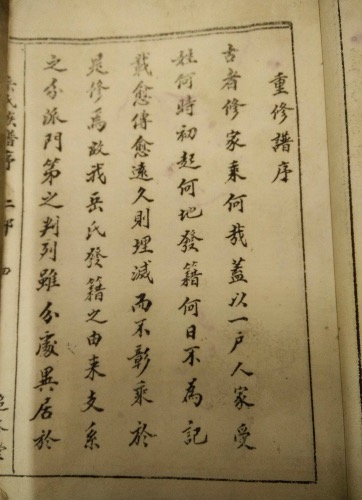 重修譜序
古者修家乘何哉蓋以一戶人家受
姓何時初起何地發籍何日不為記
載愈傳愈遠久則埋滅而不彰乘於
是修焉故我岳氏發籍之由来支系
之分派門第之判列雖分處異居於
氏族譜序 二